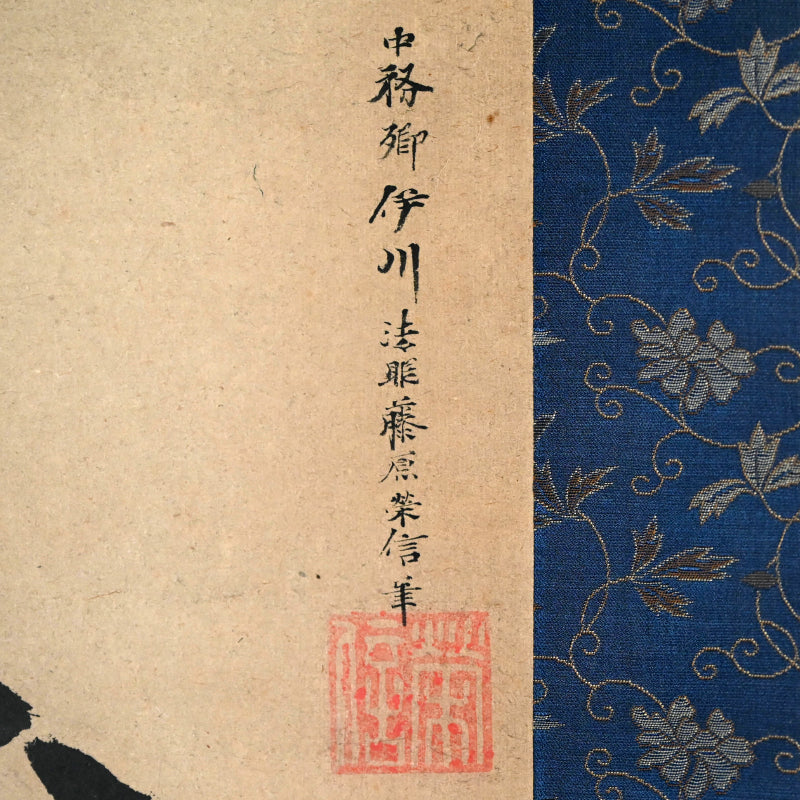 中務卿伊川法眼藤原榮信筆
榮信